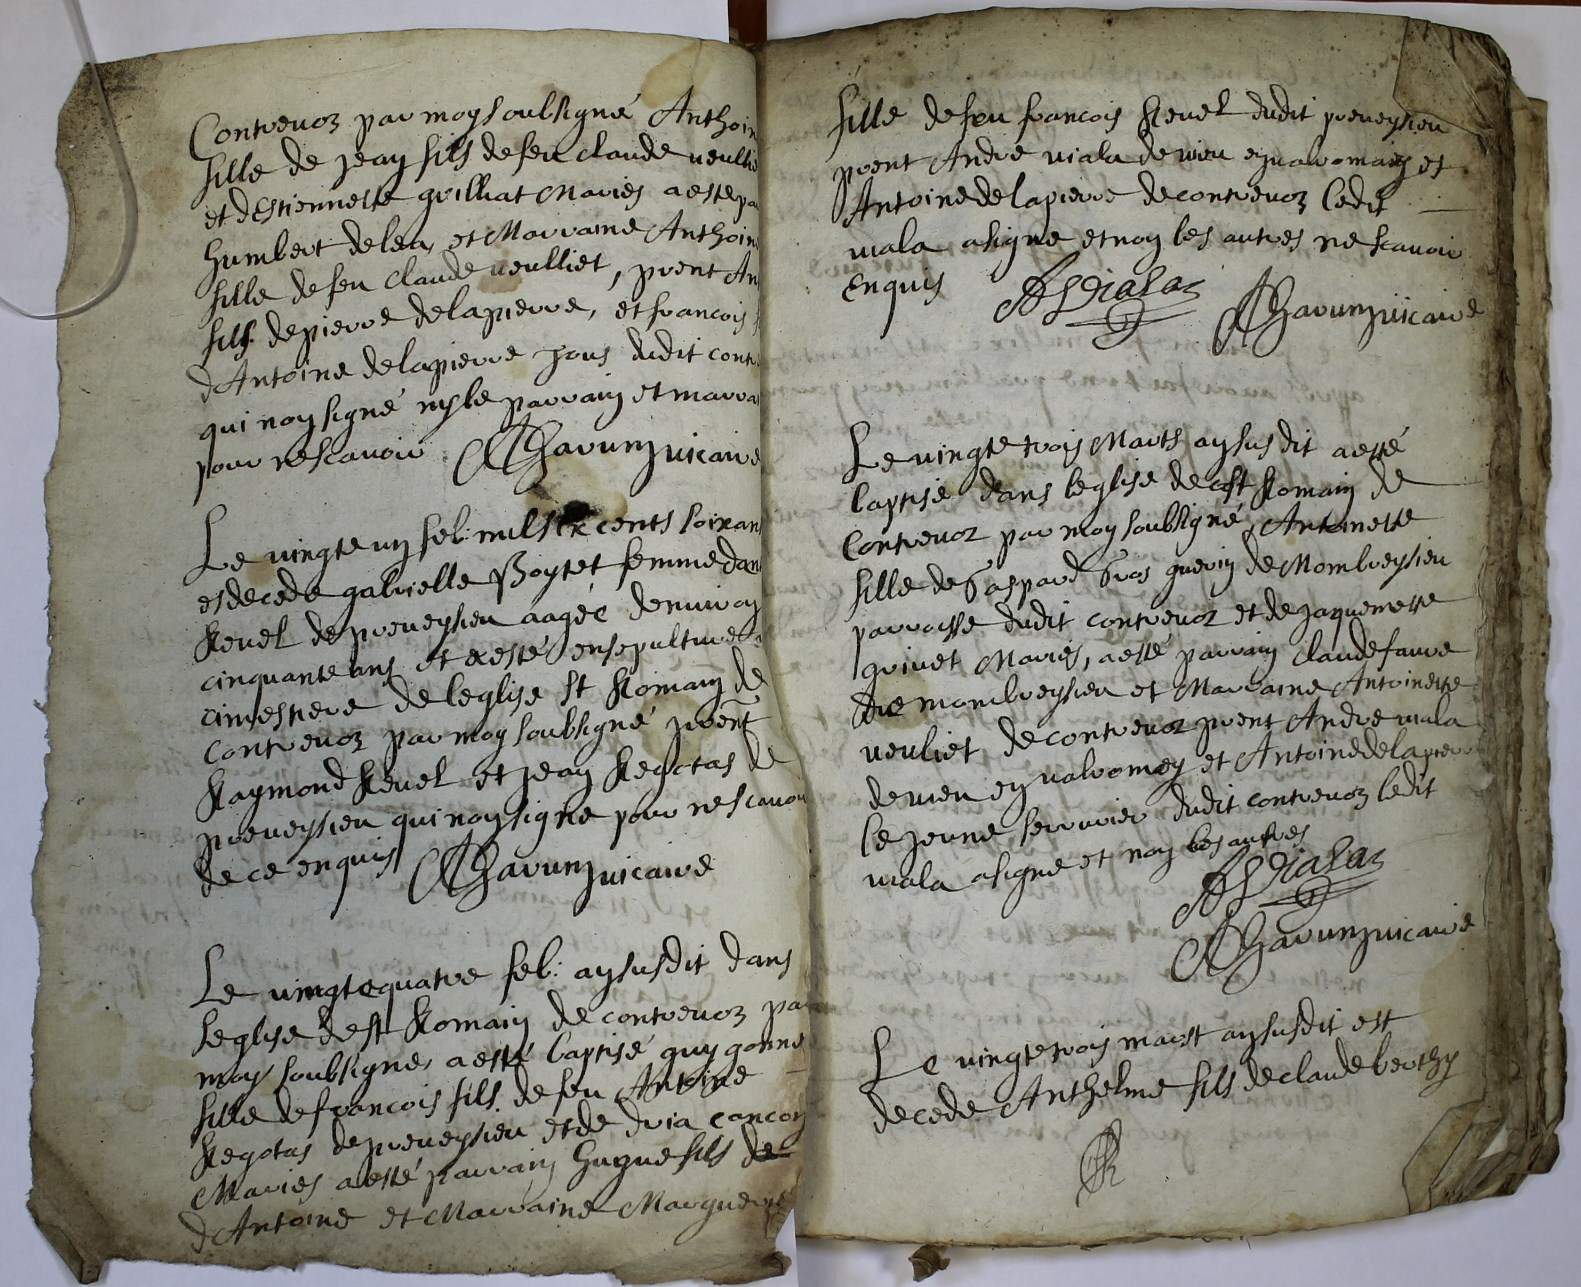 Contrevoz par moy soubsigné Anthoin
fille de jean fils de feu claude veullie
et d'Estiennette grilliat Mariés a esté pa
humbert delea et Marraine Anthoin
fille de feu claude veulliet, pnent An
fils de pierre delapierre, et francois
d'Antoine delapierre Jous dudit cont
qui noy signé ny le parrain et marra
pour ne scavoir Charun vicaire
Le vingt e un feb: mil six cents soixan
es decede gabrielle Boytet femme dan
Revel de preveysieu aagée d'environ
cinquante ans et a esté ensepulturé
cimestiere de leglise st Romain de
Contrevoz par moy soubsigné pnent
Raymond Revel et jean Regotas de
preveysieu qui noy signe pour ne scavoir
de ce enquis Charun vicaire
Le vingt e quatre feb: an susdit dans
leglise de st Romain de contrevoz par
moy soubsigné, a esté baptisé guygonne
fille de francois fils de feu Antoine
Regotas de preveysieu et de dria cancon
Mariés a esté parrain hugue fils de
d'Antoine et Marraine Margueri
fille de feu francois Revel dudit preveysieu
pnent Andre viala de vieu en valromaiy et
Antoine delapierre de contrevoz ledit
viala a signe et noy les autres ne scavoir
enquis A Viala Charun vicaire
Le vingt e trois Marts an susdit a esté
baptisé dans leglise de st Romain de
Contrevoz par moy soubsigné, Antoinette
fille de Gaspard Gros guerin de Mombreysieu
parroisse dudit contrevoz et de Jaquemette
grivet Mariés, a esté parrain claude favre
de mombreysieu et Marraine Antoinette
veuliet de contrevoz pnent Andre viala
de vieu en valromey et Antoine delapierre
le jeune serrurier dudit contrevoz ledit
viala a signe et noy les autres
A Viala
Charun vicaire
Le vingt e trois marst an susdit est
decede Anthelme fils de claude berthy